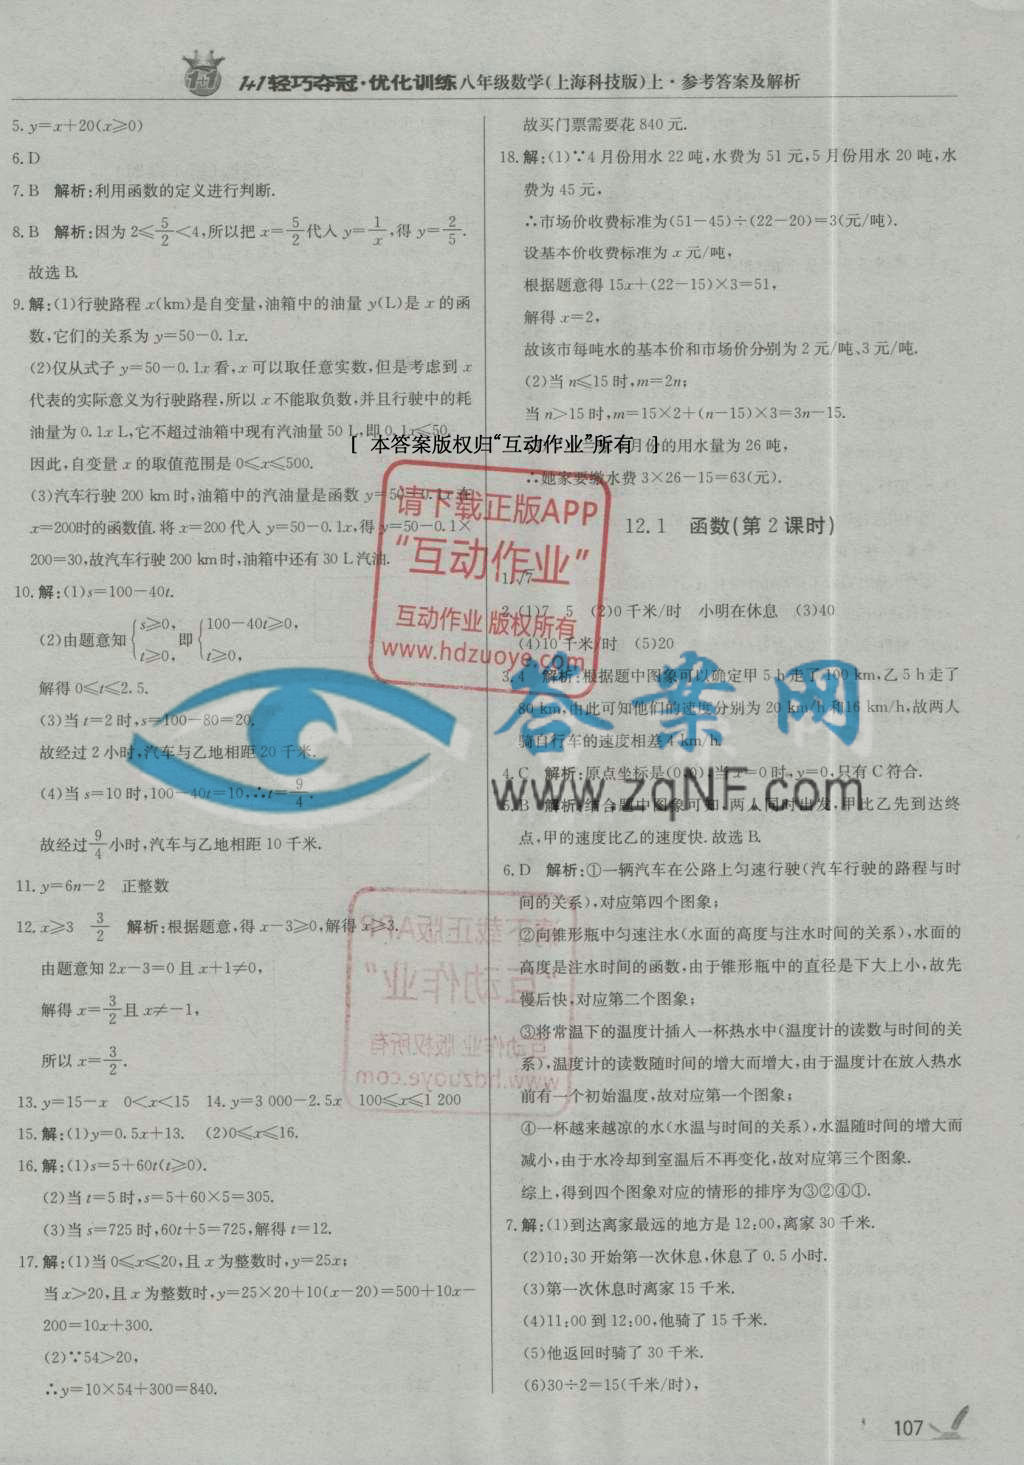 1+1轻巧夺冠·优化训练八年级数学(上海科技版)上·参考答案及解析
5. y=x+20(x≥0)
6. D
7. B 解析:利用函数的定义进行判断.
8. B 解析:因为 2≤5/2<4,所以把 x=5/2代入 y=1/x,得 y=2/5.
故选 B.
9. 解:(1)行驶路程 x(km)是自变量,油箱中的油量 y(L)是 x 的函
数,它们的关系为 y=50-0.1x.
(2)仅从式子 y=50-0.1x 看,x 可以取任意实数,但是考虑到 x
代表的实际意义为行驶路程,所以 x 不能取负数,并且行驶中的耗
油量为 0.1x L,它不超过油箱中现有汽油量 50 L,即 0.1x≤50.
因此,自变量 x 的取值范围是 0≤x≤500.
(3)汽车行驶 200 km 时,油箱中的汽油量是函数 y=50-0.1x 在
x=200时的函数值.将 x=200 代入 y=50-0.1x,得 y=50-0.1×
200=30,故汽车行驶 200 km 时,油箱中还有 30 L 汽油.
10. 解:(1)s=100-40t.
(2)由题意知{s≥0, t≥0,即{100-40t≥0, t≥0,
解得 0≤t≤2.5.
(3)当 t=2 时,s=100-80=20.
故经过 2 小时,汽车与乙地相距 20 千米.
(4)当 s=10 时,100-40t=10,∴t=9/4.
故经过9/4小时,汽车与乙地相距 10 千米.
11. y=6n-2 正整数
12. x≥3 3/2 解析:根据题意,得 x-3≥0,解得 x≥3.
由题意知 2x-3=0 且 x+1≠0,
解得 x=3/2且 x≠-1,
所以 x=3/2.
13. y=15-x 0<x<15 14. y=3 000-2.5x 100≤x≤1 200
15. 解:(1)y=0.5x+13. (2)0≤x≤16.
16. 解:(1)s=5+60t(t≥0).
(2)当 t=5 时,s=5+60×5=305.
(3)当 s=725 时,60t+5=725,解得 t=12.
17. 解:(1)当 0≤x≤20,且 x 为整数时,y=25x;
当 x>20,且 x 为整数时,y=25×20+10(x-20)=500+10x-
200=10x+300.
(2)∵54>20,
∴y=10×54+300=840.
故买门票需要花 840 元.
18. 解:(1)∵4 月份用水 22 吨,水费为 51 元,5 月份用水 20 吨,水
费为 45 元,
∴市场价收费标准为(51-45)÷(22-20)=3(元/吨).
设基本价收费标准为 x 元/吨,
根据题意得 15x+(22-15)×3=51,
解得 x=2,
故该市每吨水的基本价和市场价分别为 2 元/吨、3 元/吨.
(2)当 n≤15 时,m=2n;
当 n>15 时,m=15×2+(n-15)×3=3n-15.
月份的用水量为 26 吨,
∴她家要缴水费 3×26-15=63(元).
[ 本答案版权归“互动作业”所有 ]
12.1 函数(第 2 课时)
1. √7
2. (1)7 5 (2)0 千米/时 小明在休息 (3)40
(4)10 千米/时 (5)20
3. 4 解析:根据题中图象可以确定甲 5 h 走了 100 km,乙 5 h 走了
80 km,由此可知他们的速度分别为 20 km/h 和16 km/h,故两人
骑自行车的速度相差 4 km/h.
4. C 解析:原点坐标是(0,0),当 x=0 时,y=0,只有 C 符合.
5. B 解析:结合题中图象可知,两人同时出发,甲比乙先到达终
点,甲的速度比乙的速度快.故选 B.
6. D 解析:①一辆汽车在公路上匀速行驶(汽车行驶的路程与时
间的关系),对应第四个图象;
②向锥形瓶中匀速注水(水面的高度与注水时间的关系),水面的
高度是注水时间的函数,由于锥形瓶中的直径是下大上小,故先
慢后快,对应第二个图象;
③将常温下的温度计插入一杯热水中(温度计的读数与时间的关
系),温度计的读数随时间的增大而增大,由于温度计在放入热水
前有一个初始温度,故对应第一个图象;
④一杯越来越凉的水(水温与时间的关系),水温随时间的增大而
减小,由于水冷却到室温后不再变化,故对应第三个图象.
综上,得到四个图象对应的情形的排序为③②④①.
7. 解:(1)到达离家最远的地方是 12:00,离家 30 千米.
(2)10:30 开始第一次休息,休息了 0.5 小时.
(3)第一次休息时离家 15 千米.
(4)11:00 到 12:00,他骑了 15 千米.
(5)他返回时骑了 30 千米.
(6)30÷2=15(千米/时),
请下载正版APP
“互动作业”
互动作业 版权所有
www.hdzuoye.com
答案网
www.zqNF.com
请下载正版APP
“互动作业”
互动作业 版权所有
www.hdzuoye.com
107